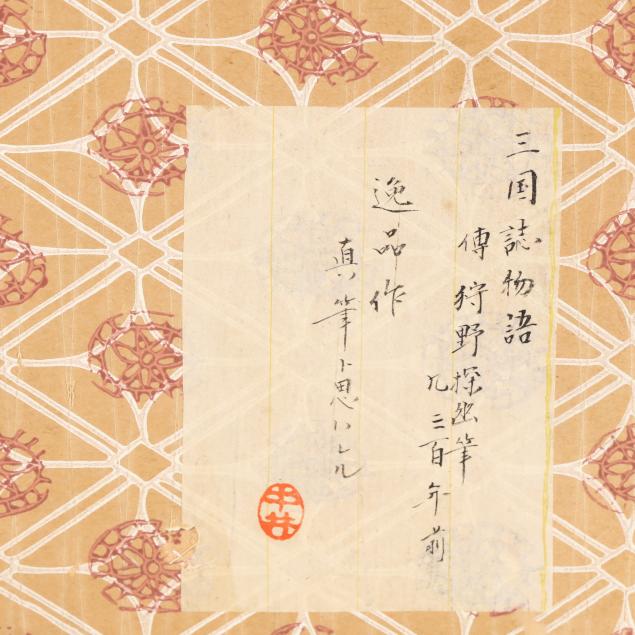 三国誌物語
傳狩野探幽筆
凡三百年前
逸品作
真筆ト思ハレル